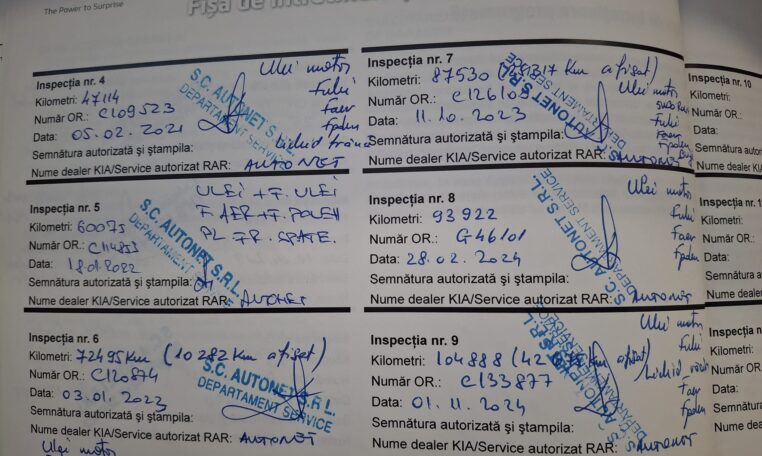 The Power to Surprise
Fișa de
Inspecția nr. 4
Kilometri: 47114
Număr OR.: C109523
Data: 05.02.2021
Semnătura autorizată și ștampila:
Nume dealer KIA/Service autorizat RAR: AUTONET
Ulei motor
Fului
Faer
Fpolen
Lichid frână
S.C. AUTONET S.R.L.
DEPARTAMENT SERVICE
Inspecția nr. 5
Kilometri: 60075
Număr OR.: C114853
Data: 18.01.2022
Semnătura autorizată și ștampila:
Nume dealer KIA/Service autorizat RAR: AUTONET
ULEI + F. ULEI
F. AER + F. POLEN
PL FR. SPATE.
S.C. AUTONET S.R.L.
DEPARTAMENT SERVICE
Inspecția nr. 6
Kilometri: 72495 Km (10282 Km afișat)
Număr OR.: C120874
Data: 03.01.2023
Semnătura autorizată și ștampila:
Nume dealer KIA/Service autorizat RAR: AUTONET
Ulei motor
S.C. AUTONET S.R.L.
DEPARTAMENT SERVICE
Inspecția nr. 7
Kilometri: 87530 Km afișat)
Număr OR.: C126105
Data: 11.10.2023
Semnătura autorizată și ștampila:
Nume dealer KIA/Service autorizat RAR: AUTONET
Ulei motor
Fului
Faer
Fpolen
S.C. AUTONET S.R.L.
DEPARTAMENT SERVICE
Inspecția nr. 8
Kilometri: 93922
Număr OR.: G46101
Data: 28.02.2024
Semnătura autorizată și ștampila:
Nume dealer KIA/Service autorizat RAR: AUTONET
Ulei motor
Fului
Faer
Fpolen
S.C. AUTONET S.R.L.
DEPARTAMENT SERVICE
Inspecția nr. 9
Kilometri: 104888 Km afișat)
Număr OR.: C133877
Data: 01.11.2024
Semnătura autorizată și ștampila:
Nume dealer KIA/Service autorizat RAR: AUTONET
Ulei motor
Fului
Lichid
Faer
Fpolen
Inspecția nr. 10
Kilometri:
Număr OR.:
Data:
Semnătura
Nume dealer
Inspecția nr. 1
Kilometri:
Număr OR.
Data:
Semnătura a
Nume deale
Inspecția n
Kilometri:
Număr OR
Data:
Semnătu
Nume de